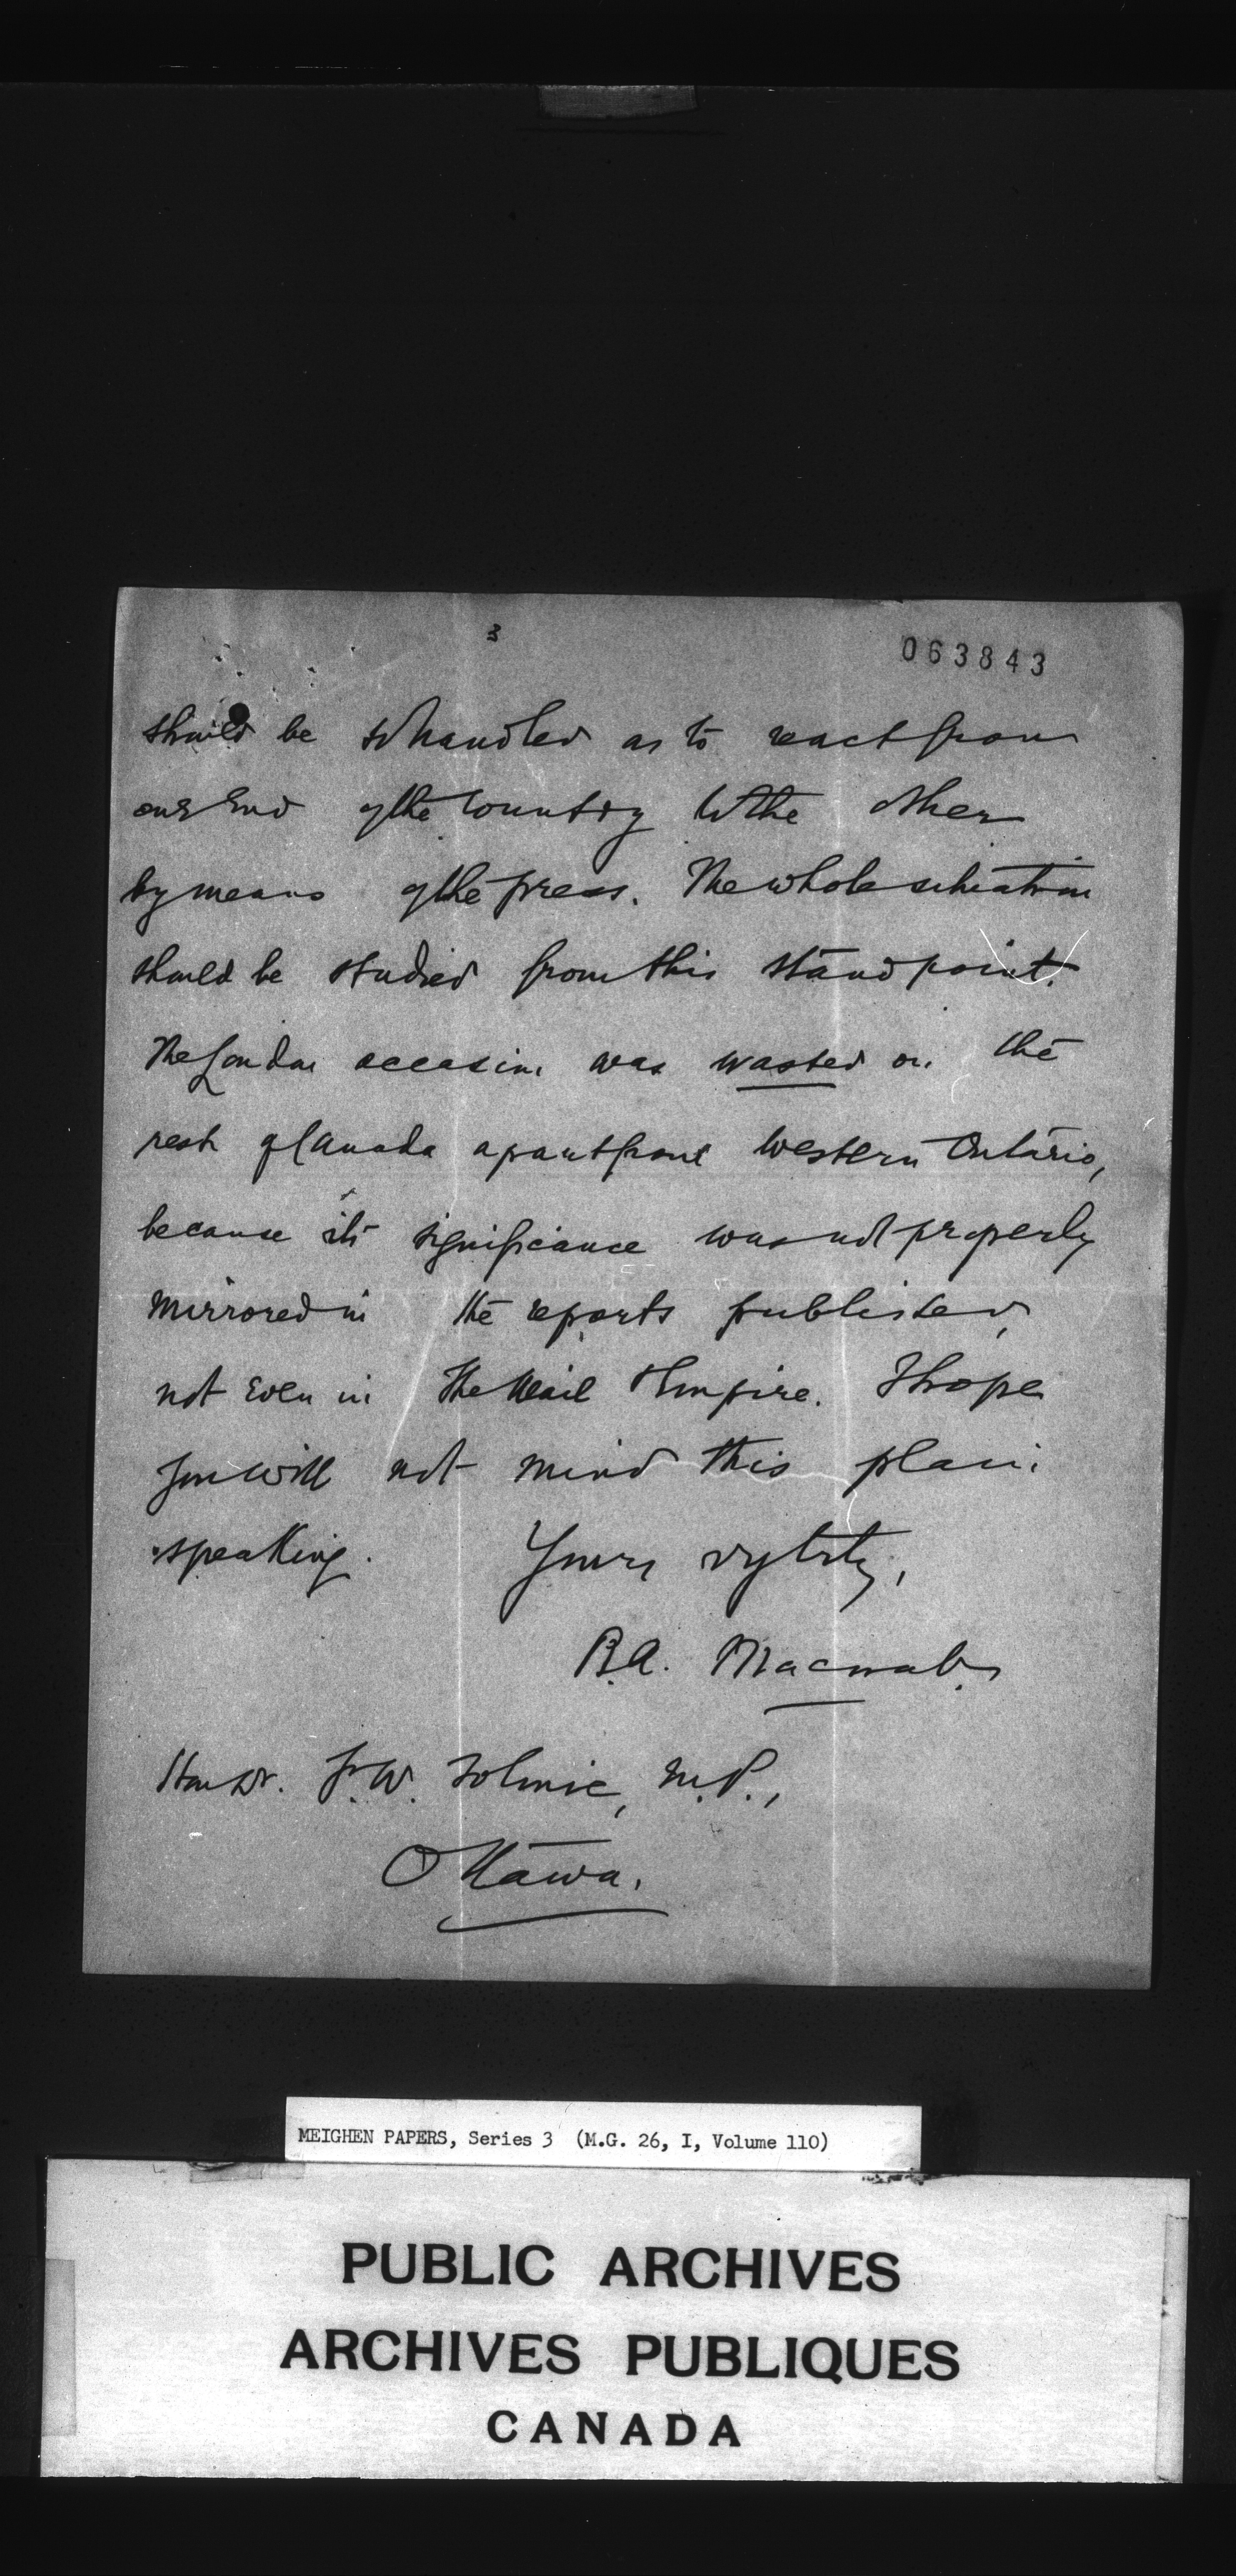 3
063843
should be so handled as to react from
one end of the country to the other
by means of the press. The whole situation
should be studied from this standpoint.
The London occasion was wasted on the
rest of Canada apart from Western Ontario,
because its significance was not properly
mirrored in the reports published,
not even in The Mail & Empire. I hope
you will not mind this plain
speaking. Yours vy trly,
B.A. Macnab.
Hon Dr. S.W. Tolmie, M.P.,
Ottawa.
MEIGHEN PAPERS, Series 3 (M.G. 26, I, Volume 110)
PUBLIC ARCHIVES
ARCHIVES PUBLIQUES
CANADA